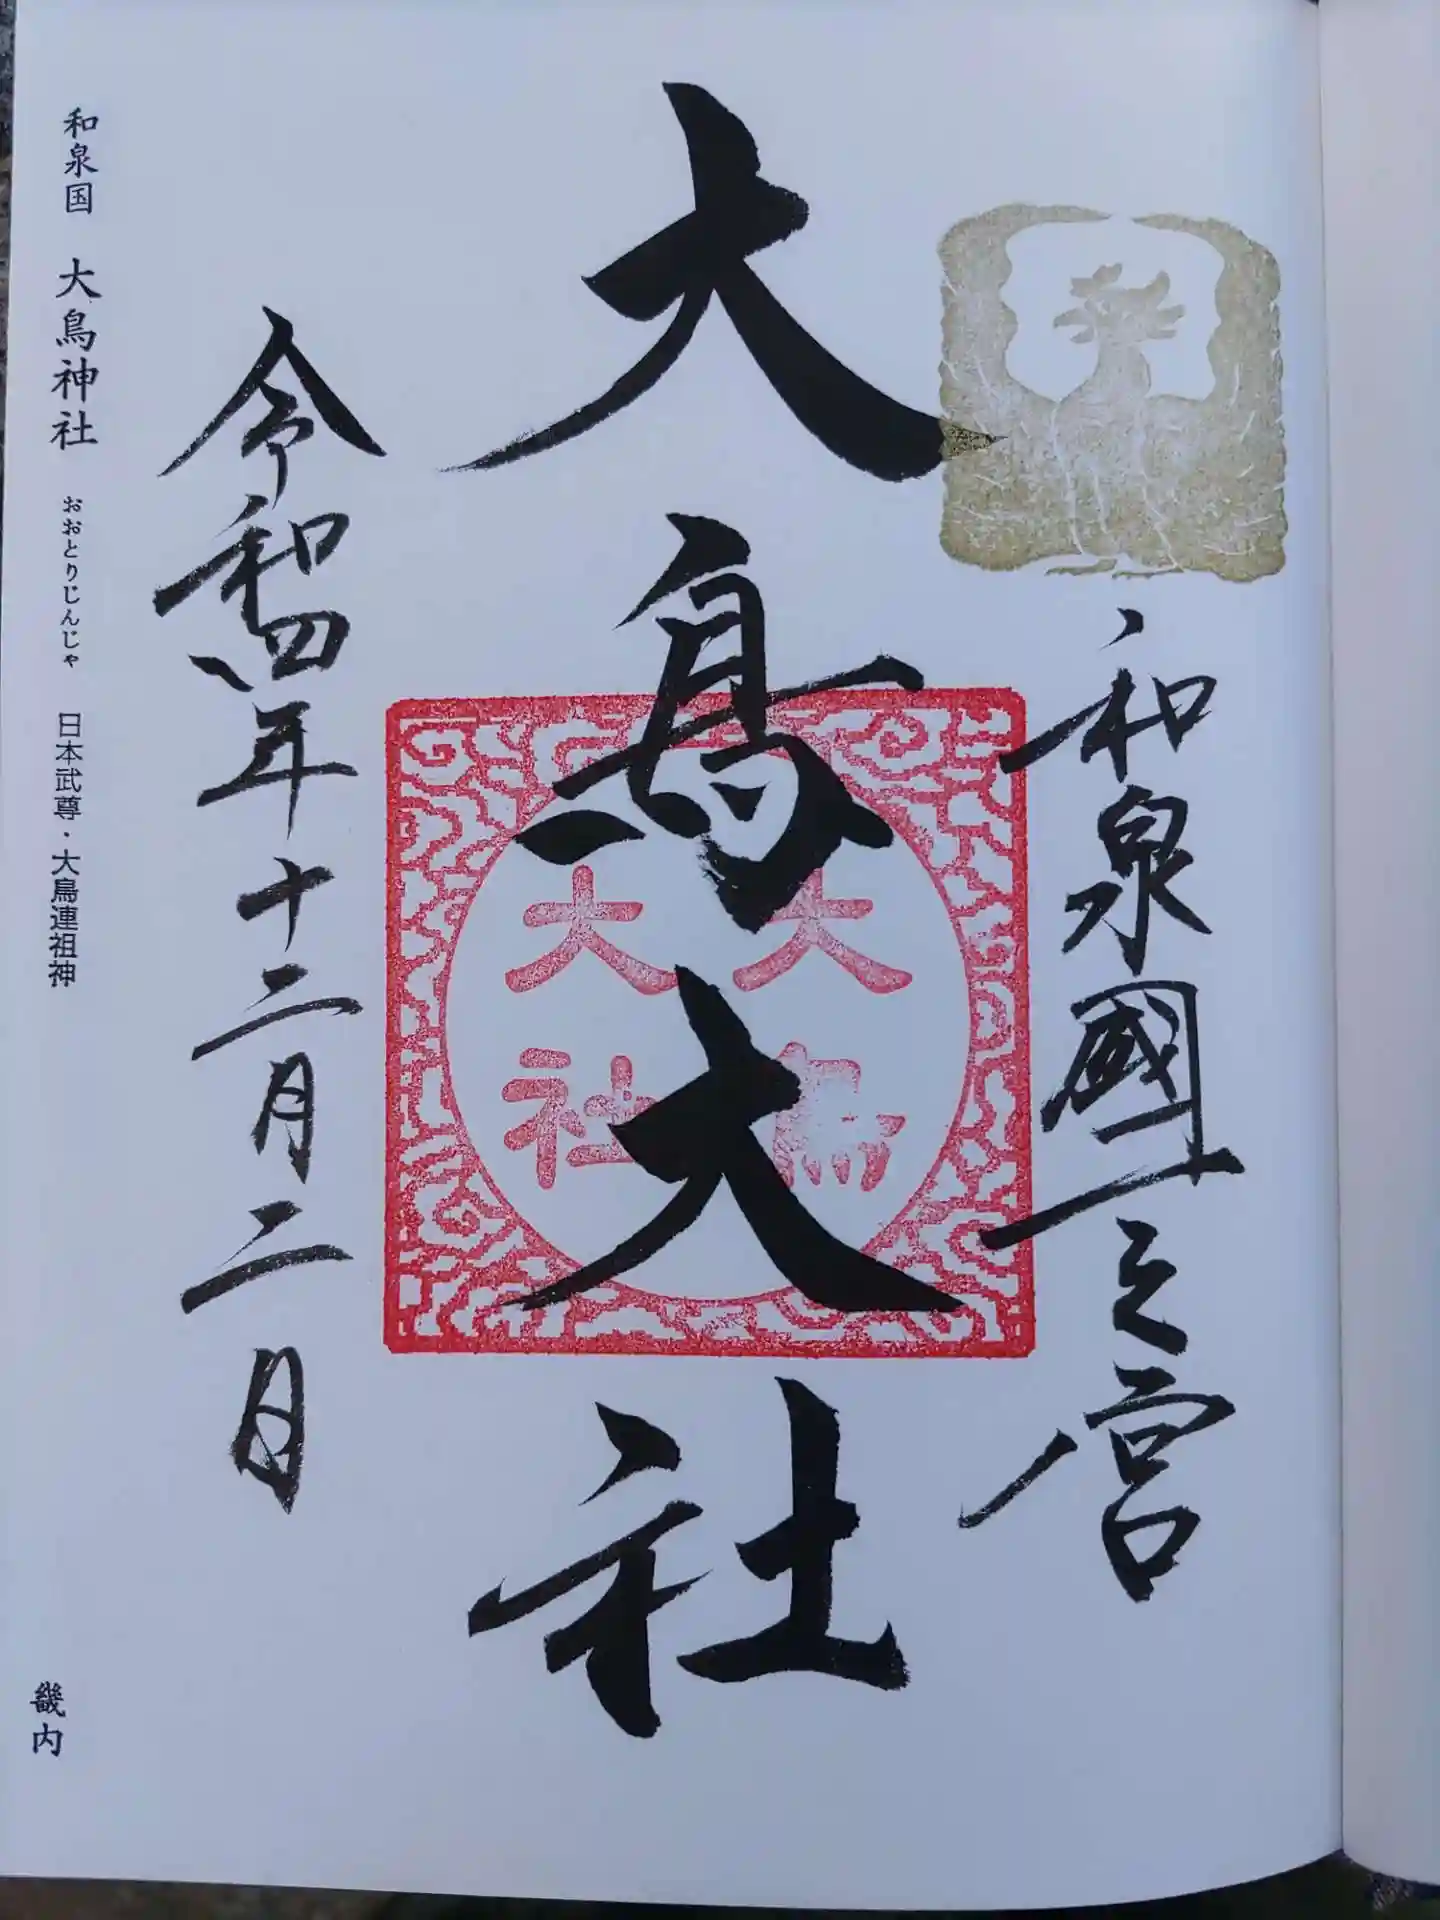 和泉國一之宮
大鳥大社
大鳥
大社
令和四年十二月二日
和泉国 大鳥神社 おおとりじんじゃ 日本武尊・大鳥連祖神
畿内